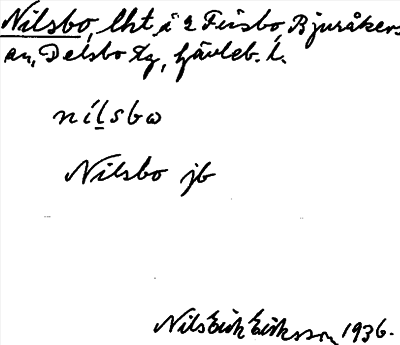 Nilsbo, lht å 2 Fiisbo, Bjuråkers
sn, Delsbo tg, Gävleb. l.
nílsbω
Nilsbo jb
Nils Erik Eriksson 1936.